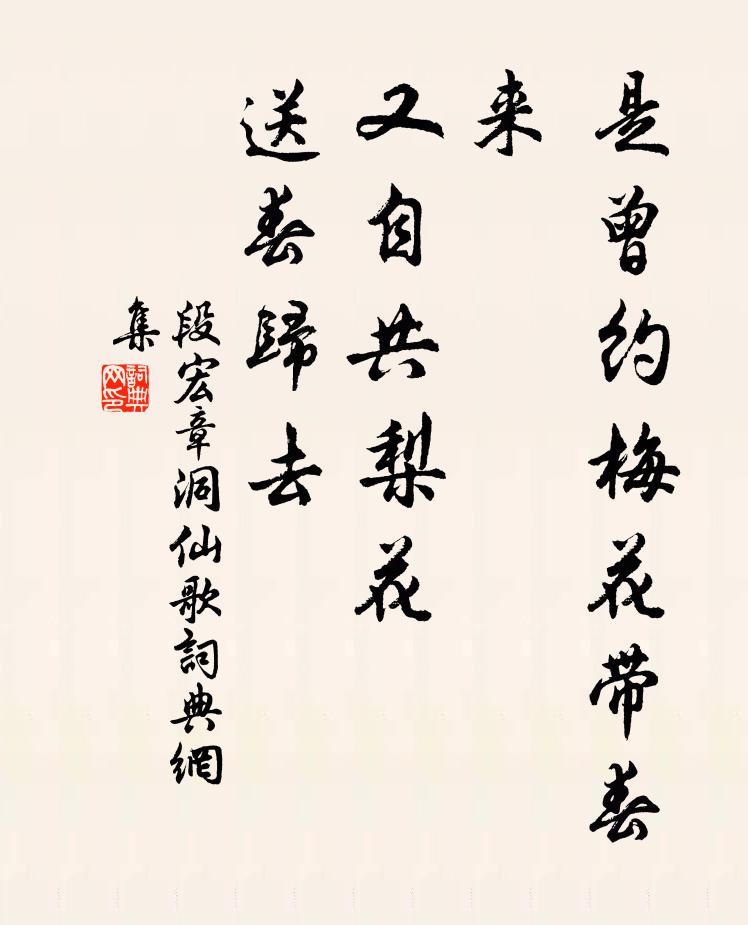 是曾约梅花带春
来
又自共梨花
送春歸去
段宏章洞仙歌詞典網
集
詞典
网印